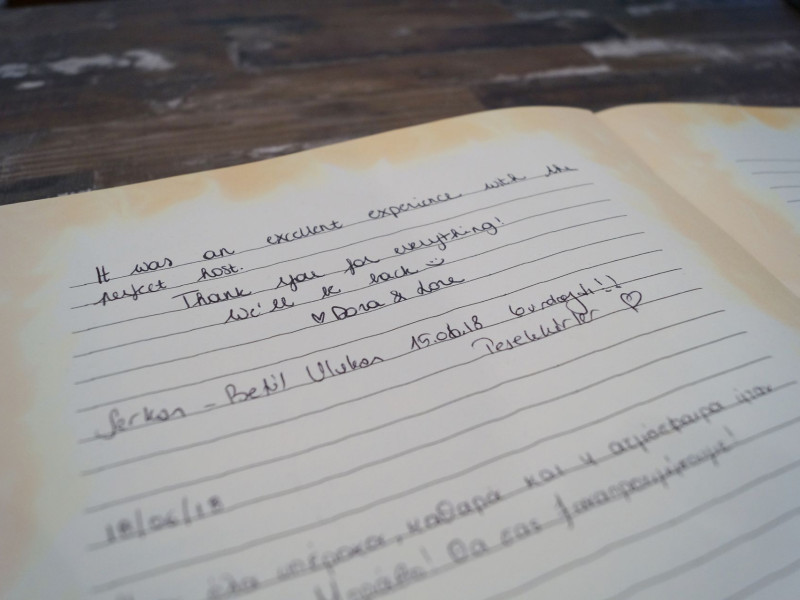 It was an excellent experience with the
perfect host.
Thank you for everything!
We'll be back
Dora & Lore
Serkan - Betil Ulukan 15.06.18 burdaydı!!
Teşekkürler
18/06/18
όλα υπέροχα, καθαρά και η ατμόσφαιρα ήταν
Μπράβο! Θα σας ξαναπροτιμήσουμε!